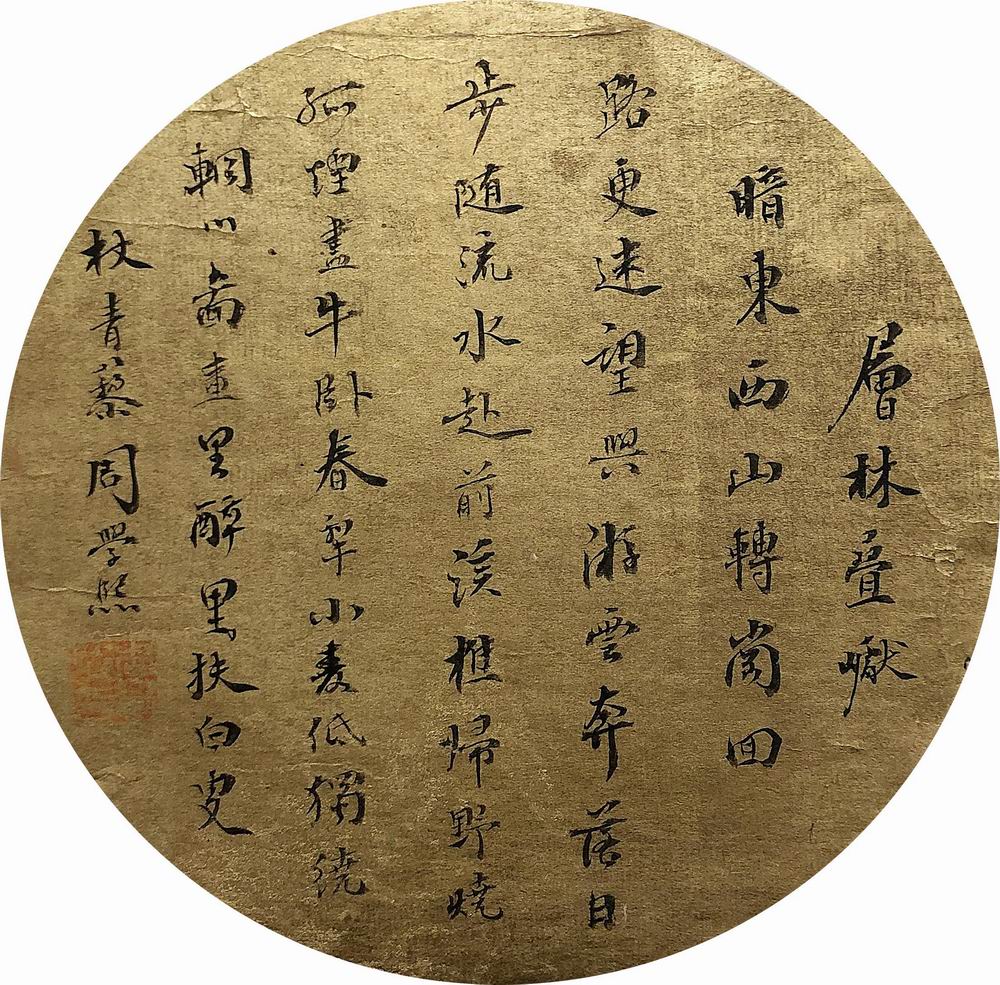 層林疊巘
暗東西山轉崗回
路更迷望與游雲奔落日
步随流水赴前溪樵歸野燒
孤煙盡牛臥春犁小麥低獨繞
輞川圖畫里醉里扶白叟
杖青藜周學熙